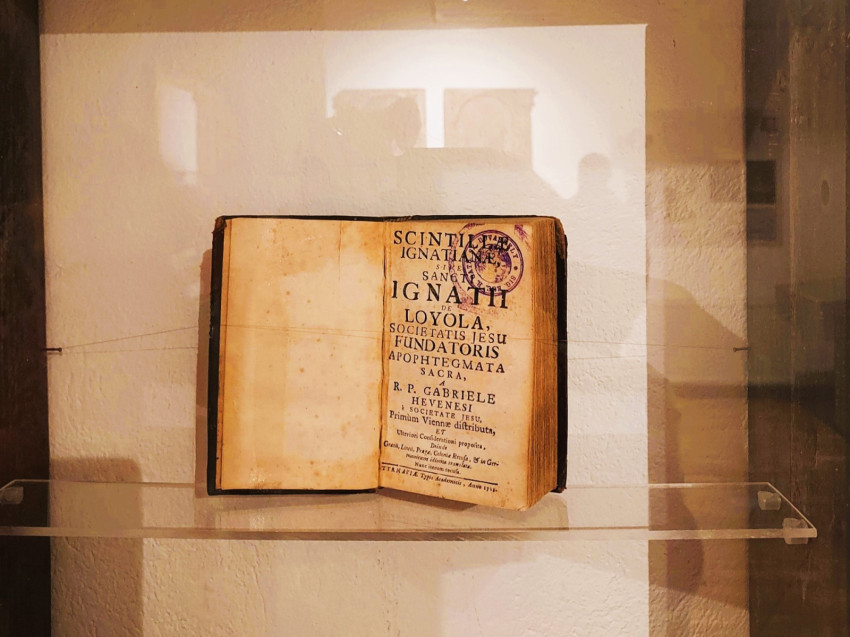 SCINTILLÆ
IGNATIANÆ,
SIVE
SANCTI
IGNATII
DE
LOYOLA,
SOCIETATIS JESU
FUNDATORIS
APOPHTEGMATA
SACRA,
A
R. P. GABRIELE
HEVENESI
è SOCIETATE JESU,
Primùm Viennæ distributa,
ET
Ulteriori Considerationi proposita,
Deinde
Græcii, Lincii, Pragæ, Coloniæ Recusa, & in Ger-
manicum idioma translata.
Nunc iterum recusa.
TYRNAVIÆ Typis Academicis, Anno